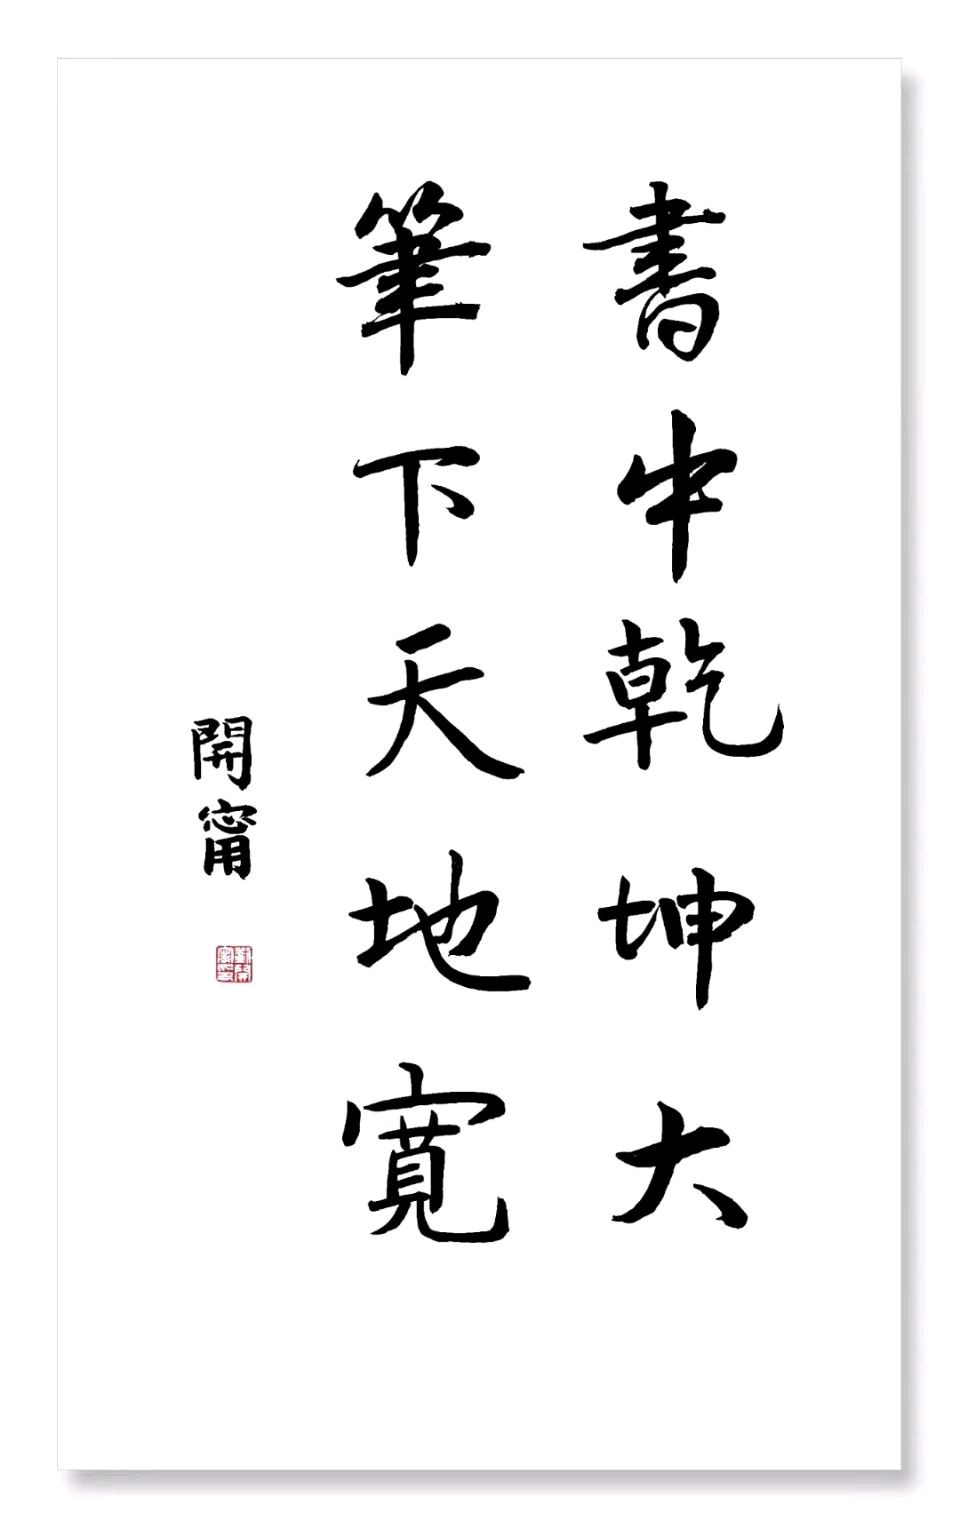 書中乾坤大
筆下天地寬
開甯